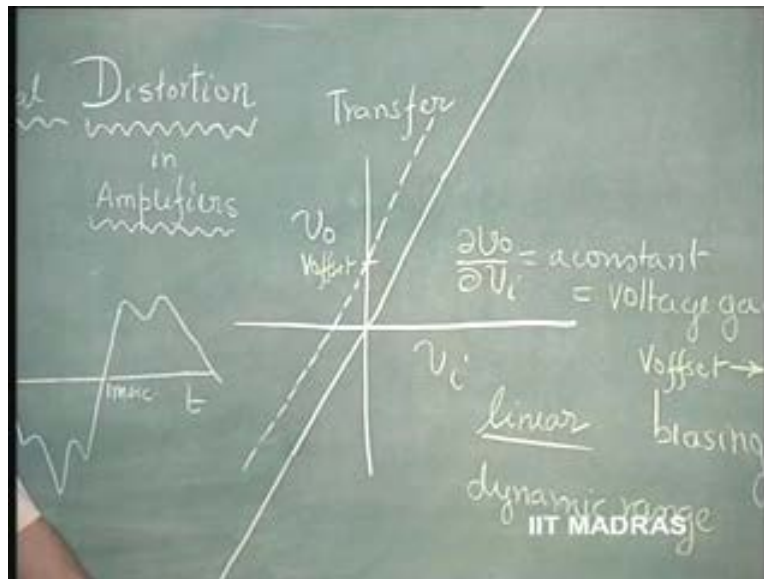 Distortion
in
Amplifiers
Transfer
Vo
Voffset
∂Vo/∂Vi = a constant
= Voltage ga
Vi
Voffset →
linear
biasing
dynamic range
1msec
t
IIT MADRAS